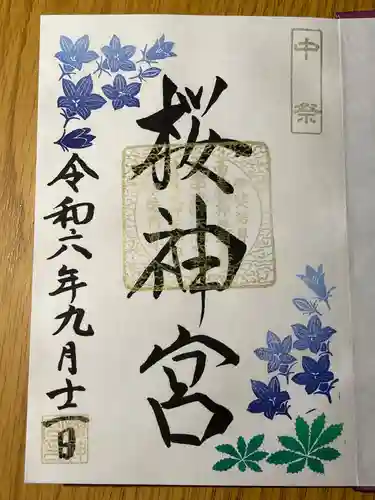 中祭
桜神宮
令和六年九月十一日